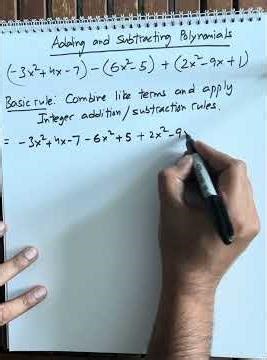 Adding and Subtracting Polynomials
(-3x²+4x-7)-(6x²-5)+(2x²-9x+1)
Basic rule: Combine like terms and apply
Integer addition/subtraction rules.
= -3x²+4x-7-6x²+5+2x²-9x